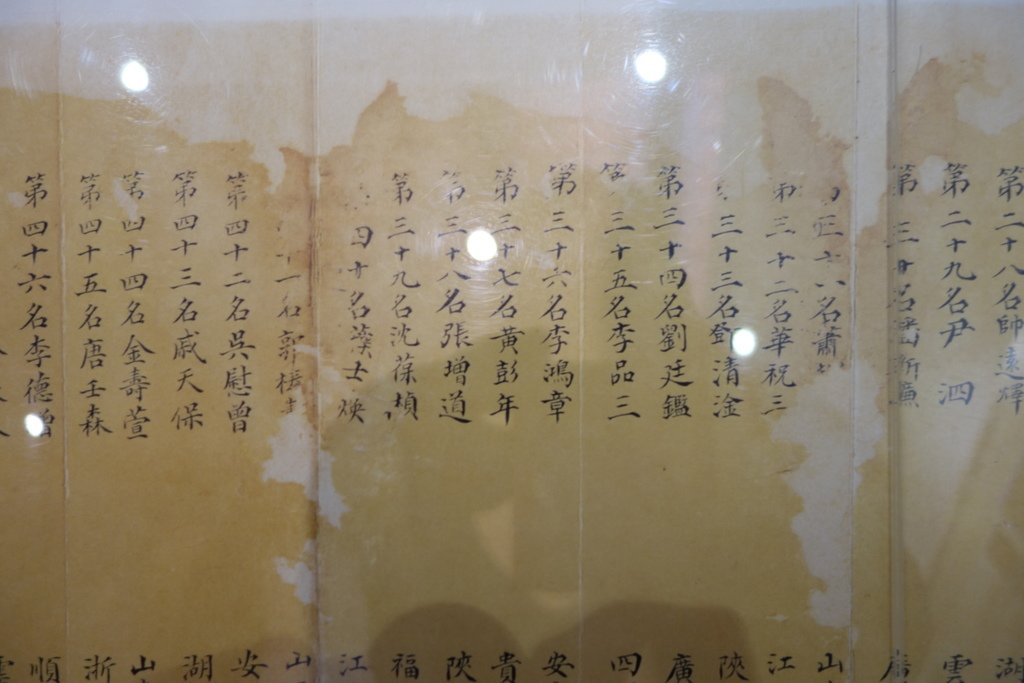 第二十八名帥遠燡 湖
第二十九名尹泗 雲
第三十名潘斯濂 廣
名蕭 山
第三十二名華祝三 江
三十三名鄧清淦 陝
第三十四名劉廷鑑 廣
第三十五名李品三 四
第三十六名李鴻章 安
第三十七名黃彭年 貴
第三十八名張增道 陝
第三十九名沈葆楨 福
四十名龔士煥 江
一名郭椿 山
第四十二名吳慰曾 安
第四十三名戚天保 湖
第四十四名金壽萱 山
第四十五名唐壬森 浙
第四十六名李德曾 順
雲